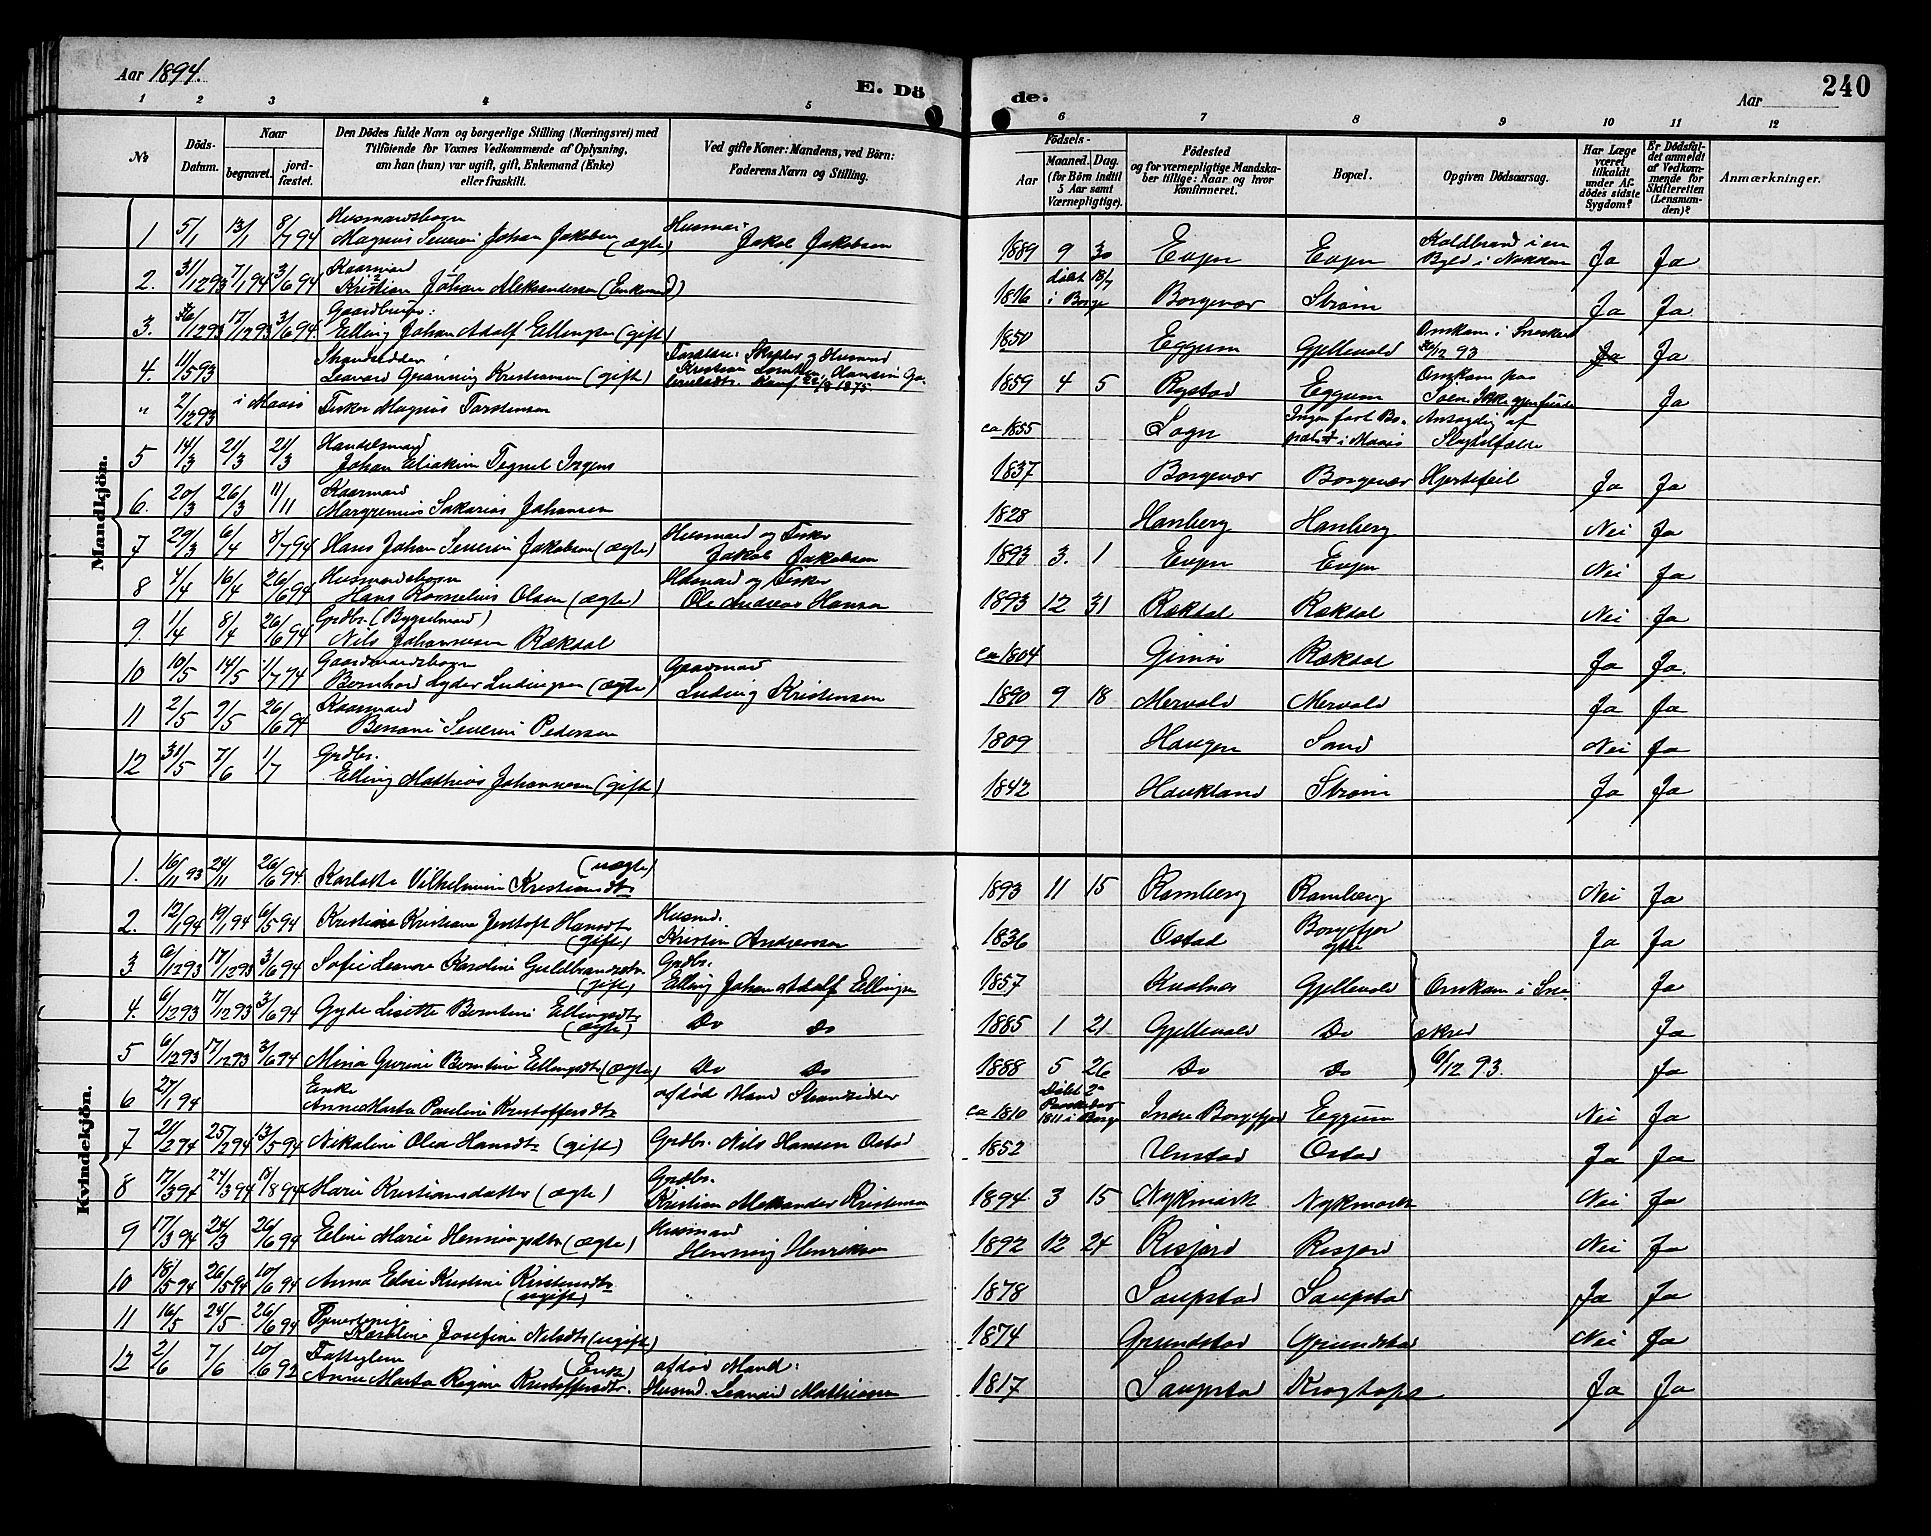 Aar 1894.
E. Dö de.
Aar
240
1 2 3 4 5 6 7 8 9 10 11 12
No
Döds-Datum.
Naar
begravet.
jord-fæstet.
Den Dödes fulde Navn og borgerlige Stilling (Næringsvei) med
Tilföiende for Voxnes Vedkommende af Oplysning,
om han (hun) var ugift, gift, Enkemand (Enke)
eller fraskilt.
Ved gifte Koner: Mandens, ved Börn:
Faderens Navn og Stilling.
Födsels-
Aar
Maaned. Dag.
(for Börn indtil
5 Aar samt
Værnepligtige).
Födested
og for værnepligtige Mandska-
ber tillige: Naar og hvor
konfirmeret.
Bopæl.
Opgiven Dödsaarsag.
Har Læge
været
tilkaldt
under Af-
dödes sidste
Sygdom?
Er Dödsfal-
det anmeldt
af Vedkom-
mende for
Skifteretten
(Lensman-
den)?
Anmærkninger.
Mandkjön.
1 5/1 13/1 8/7 94 Magnus Severin Johan Jakobsen (ægte) Jakob Jakobsen 1889 9 30 Evjen Evjen Koldbrand i en Byld i Nakken Ja Ja
2. 31/12 93 7/1 94 3/6 94 Kaarmand Kristian Johan Aleksandersen (Enkemd) 1816 døbt 18/7 i Borge Borgevær Strøm Ja Ja
3. 17/12 93 3/6 94 Elling Johan Adolf Ellingsen (gift) 1850 Eggum Gjellevold Omkom i 6/12 93 Ja Ja
4. 11/5 93 Strandsidder Kristiansen (gift) 1859 4 5 Rystad Eggum Omkom paa Ja
" 2/12 93 i Maars Fisker Magnus Torstensen ca 1855 Sogn Ingen fast Bo- Ansagdig af
5 14/3 21/3 21/3 Handelsmand Johan Eliakim Tegnel Irgens 1837 Borgevær Borgevær Hjertefeil Ja Ja
6. 20/3 26/3 11/11 Kaarmand Sakarias Johansen 1828 Hanberg Hanberg Nei Ja
7 29/3 6/4 8/7 94 Hans Johan Severin Jakobsen (ægte) Husmand og Fisker Jakob Jakobsen 1893 3. 1 Evjen Evjen Nei Ja
8 4/4 16/4 26/6 94 Husmandsbarn Hans Kornelius Olsen (ægte) Husmand og Fisker Ole Andreas Hansen 1893 12 31 Ræktal Ræktal Nei Ja
9 1/4 8/4 26/6 94 Grdbr. (Bygselmand) Nils Johannesen Ræktal ca 1804 Gimsø Ræktal Ja Ja.
10 10/5 14/5 Gaardmandsbarn Bernhard Lyder Ludvigsen (ægte) Gaardmand Ludvig Kristensen 1890 9 18 Mervold Mervold Ja Ja
11 2/5 9/5 26/6 94 Kaarmand Severin Pedersen 1809 Haugen Sand Nei Ja
12 31/5 7/6 1/7 Grdbr. Elling Mathias Johannesen (gift) 1842 Haukland Strøm Ja Ja
Kvindekjön.
1. 16/11 93 24/11 26/6 94 Karlotte Vilhelmine Kristiansdtr (uægte) 1893 11 15 Ramberg Ramberg Nei Ja
2. 12/1 94 19/1 94 6/5 94 Kristine Kristiane Jentoft Hansdtr (gift) Husmd. Kristen Andreassen 1836 Ostad Borgefjord Ja Ja
3 6/12 93 17/12 93 3/6 94 Sofie Leonore Karoline Guldbrandsdtr. (gift) Grdbr. Elling Johan Adolf Ellingsen 1857 Kvalnes Gjellevold Omkom i Sne- Ja
4. 6/12 93 17/12 93 3/6 94 Gyda Lisette Berntine Ellingsdtr (ægte) Do Do 1885 1 21 Gjellevold Do skred Ja
5 6/12 93 17/12 93 3/6 94 Mina Gurine Berntine Ellingsdtr (ægte) Do Do 1888 5 26 Do Do 6/12 93. Ja
6 27/1 94 Enke Anne Marta Pauline Kristoffersdtr afdød Mand Strandsidder ca 1810 Døbt 2den Paaskedag 1811 i Borge Indre Borgefjord Eggum Nei Ja
7 21/2 94 25/2 94 13/5 94 Nikoline Olea Hansdtr (gift) Grdbr. Nils Hansen Ostad 1852 Unstad Ostad Ja Ja
8 17/3 94 24/3 94 11/8 94 Marie Kristiansdatter (ægte) Grdbr. Kristian Aleksander Kristensen 1894 3 15 Nykmark Nykmark Nei Ja
9 17/3 94 24/3 26/6 94 Eline Marie Henningsdtr (ægte) Husmand Henning Henriksen 1892 12 24 Risfjord Risfjord Nei Ja
10 18/5 94 26/5 94 10/6 94 Anna Elise Kristine Kristensdtr (ugift) 1878 Saupstad Saupstad Ja Ja
11 16/5 24/5 26/6 94 Tjenestepige Karoline Josefine Nilsdtr (ugift) 1874 Grundstad Grundstad Nei Ja
12 2/6 7/6 10/6 92 Fattiglem Anne Marta Regine Kristoffersdtr. (Enke) afdød Mand: Husmd. Leonard Mathiassen 1817 Saupstad Krogtoft Ja Ja